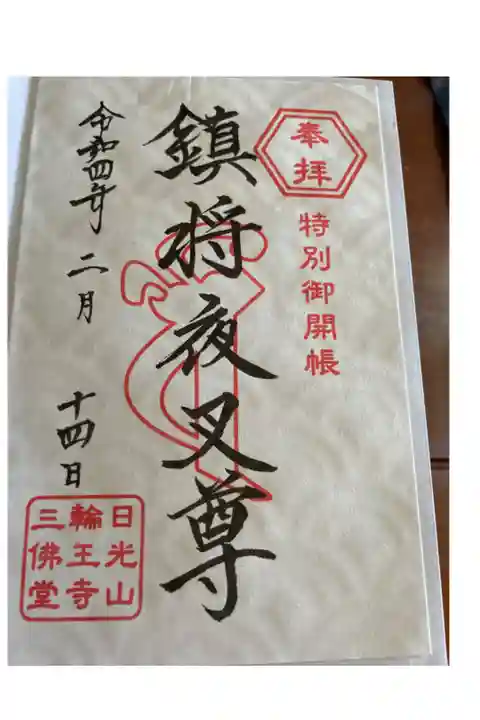 奉拝
特別御開帳
鎮将夜叉尊
令和四年 二月 十四日
日光山
輪王寺
三佛堂